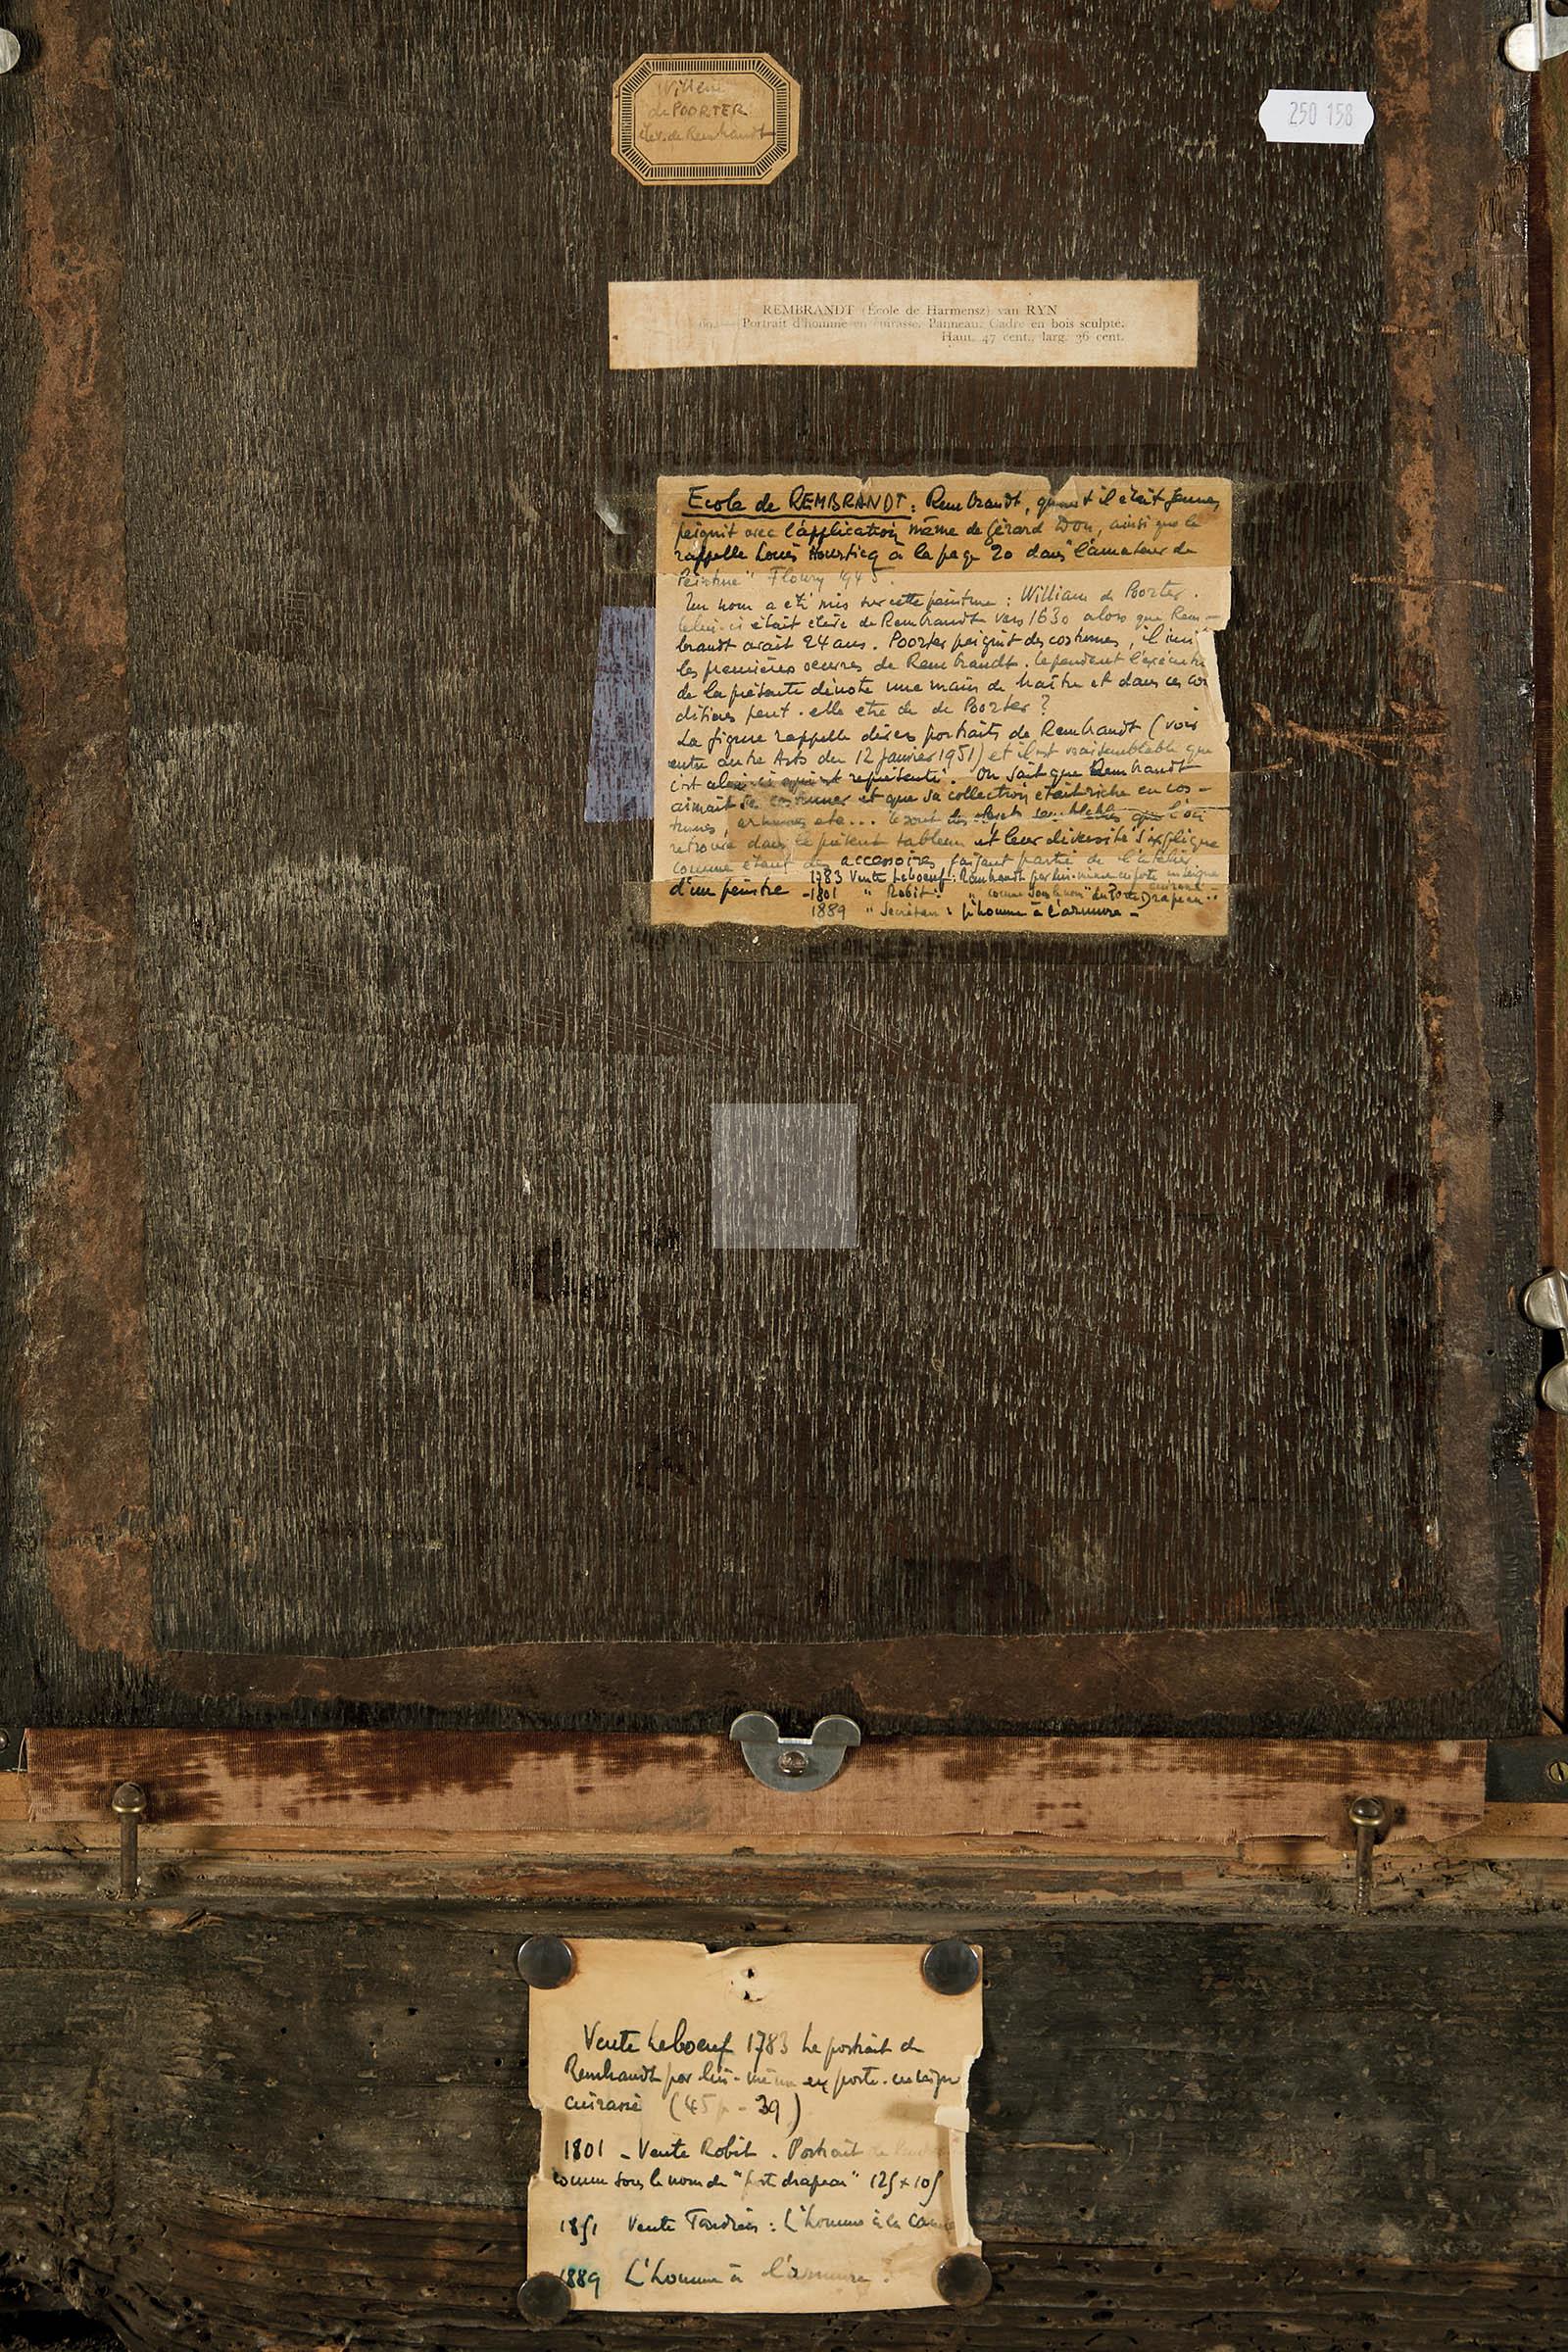 Willem
de POORTER
élev. de Rembrandt
250 158
REMBRANDT (École de Harmensz) van RYN
Portrait d'homme en cuirasse. Panneau. Cadre en bois sculpté.
Haut. 47 cent., larg. 36 cent.
Ecole de REMBRANDT : Rembrandt, quand il était jeune,
peignit avec l'application même de Gérard Dou, ainsi que le
rappelle Louis Hourticq à la page 20 dans "l'amateur de
Peinture" Floury 1945.
Un nom a été mis sur cette peinture : William de Poorter.
Celui-ci était élève de Rembrandt vers 1630 alors que Rem-
brandt avait 24 ans. Poorter peignit des costumes, il imi
les premières oeuvres de Rembrandt. Cependant l'exécuti
de la présente dénote une main de Maître et dans ces con
ditions peut-elle être de de Poorter ?
La figure rappelle divers portraits de Rembrandt (voir
entre autre Arts du 12 Janvier 1951) et il est vraisemblable que
c'est représenté. On sait que Rembrandt
aimait se costumer et que sa collection était riche en cos-
tumes, armures etc... que l'on
retrouve dans le présent tableau et leur diversité s'explique
comme étant des accessoires faisant partie de l'atelier
d'un peintre
1783 Vente Leboeuf : Rembrandt par lui-même en porte enseigne
cuirassé
-1801 " Robit : " connu sous le nom "du Porte Drapeau"
1889 " Secrétan : L'homme à l'armure -
Vente Leboeuf 1783 Le portrait de
Rembrandt par lui-même en porte-enseigne
cuirassé (45 - 39)
1801 - Vente Robit. Portrait de
connu sous le nom de "port drapeau" 125 x 105
1851 Vente : L'homme à la
1889 L'homme à l'armure.